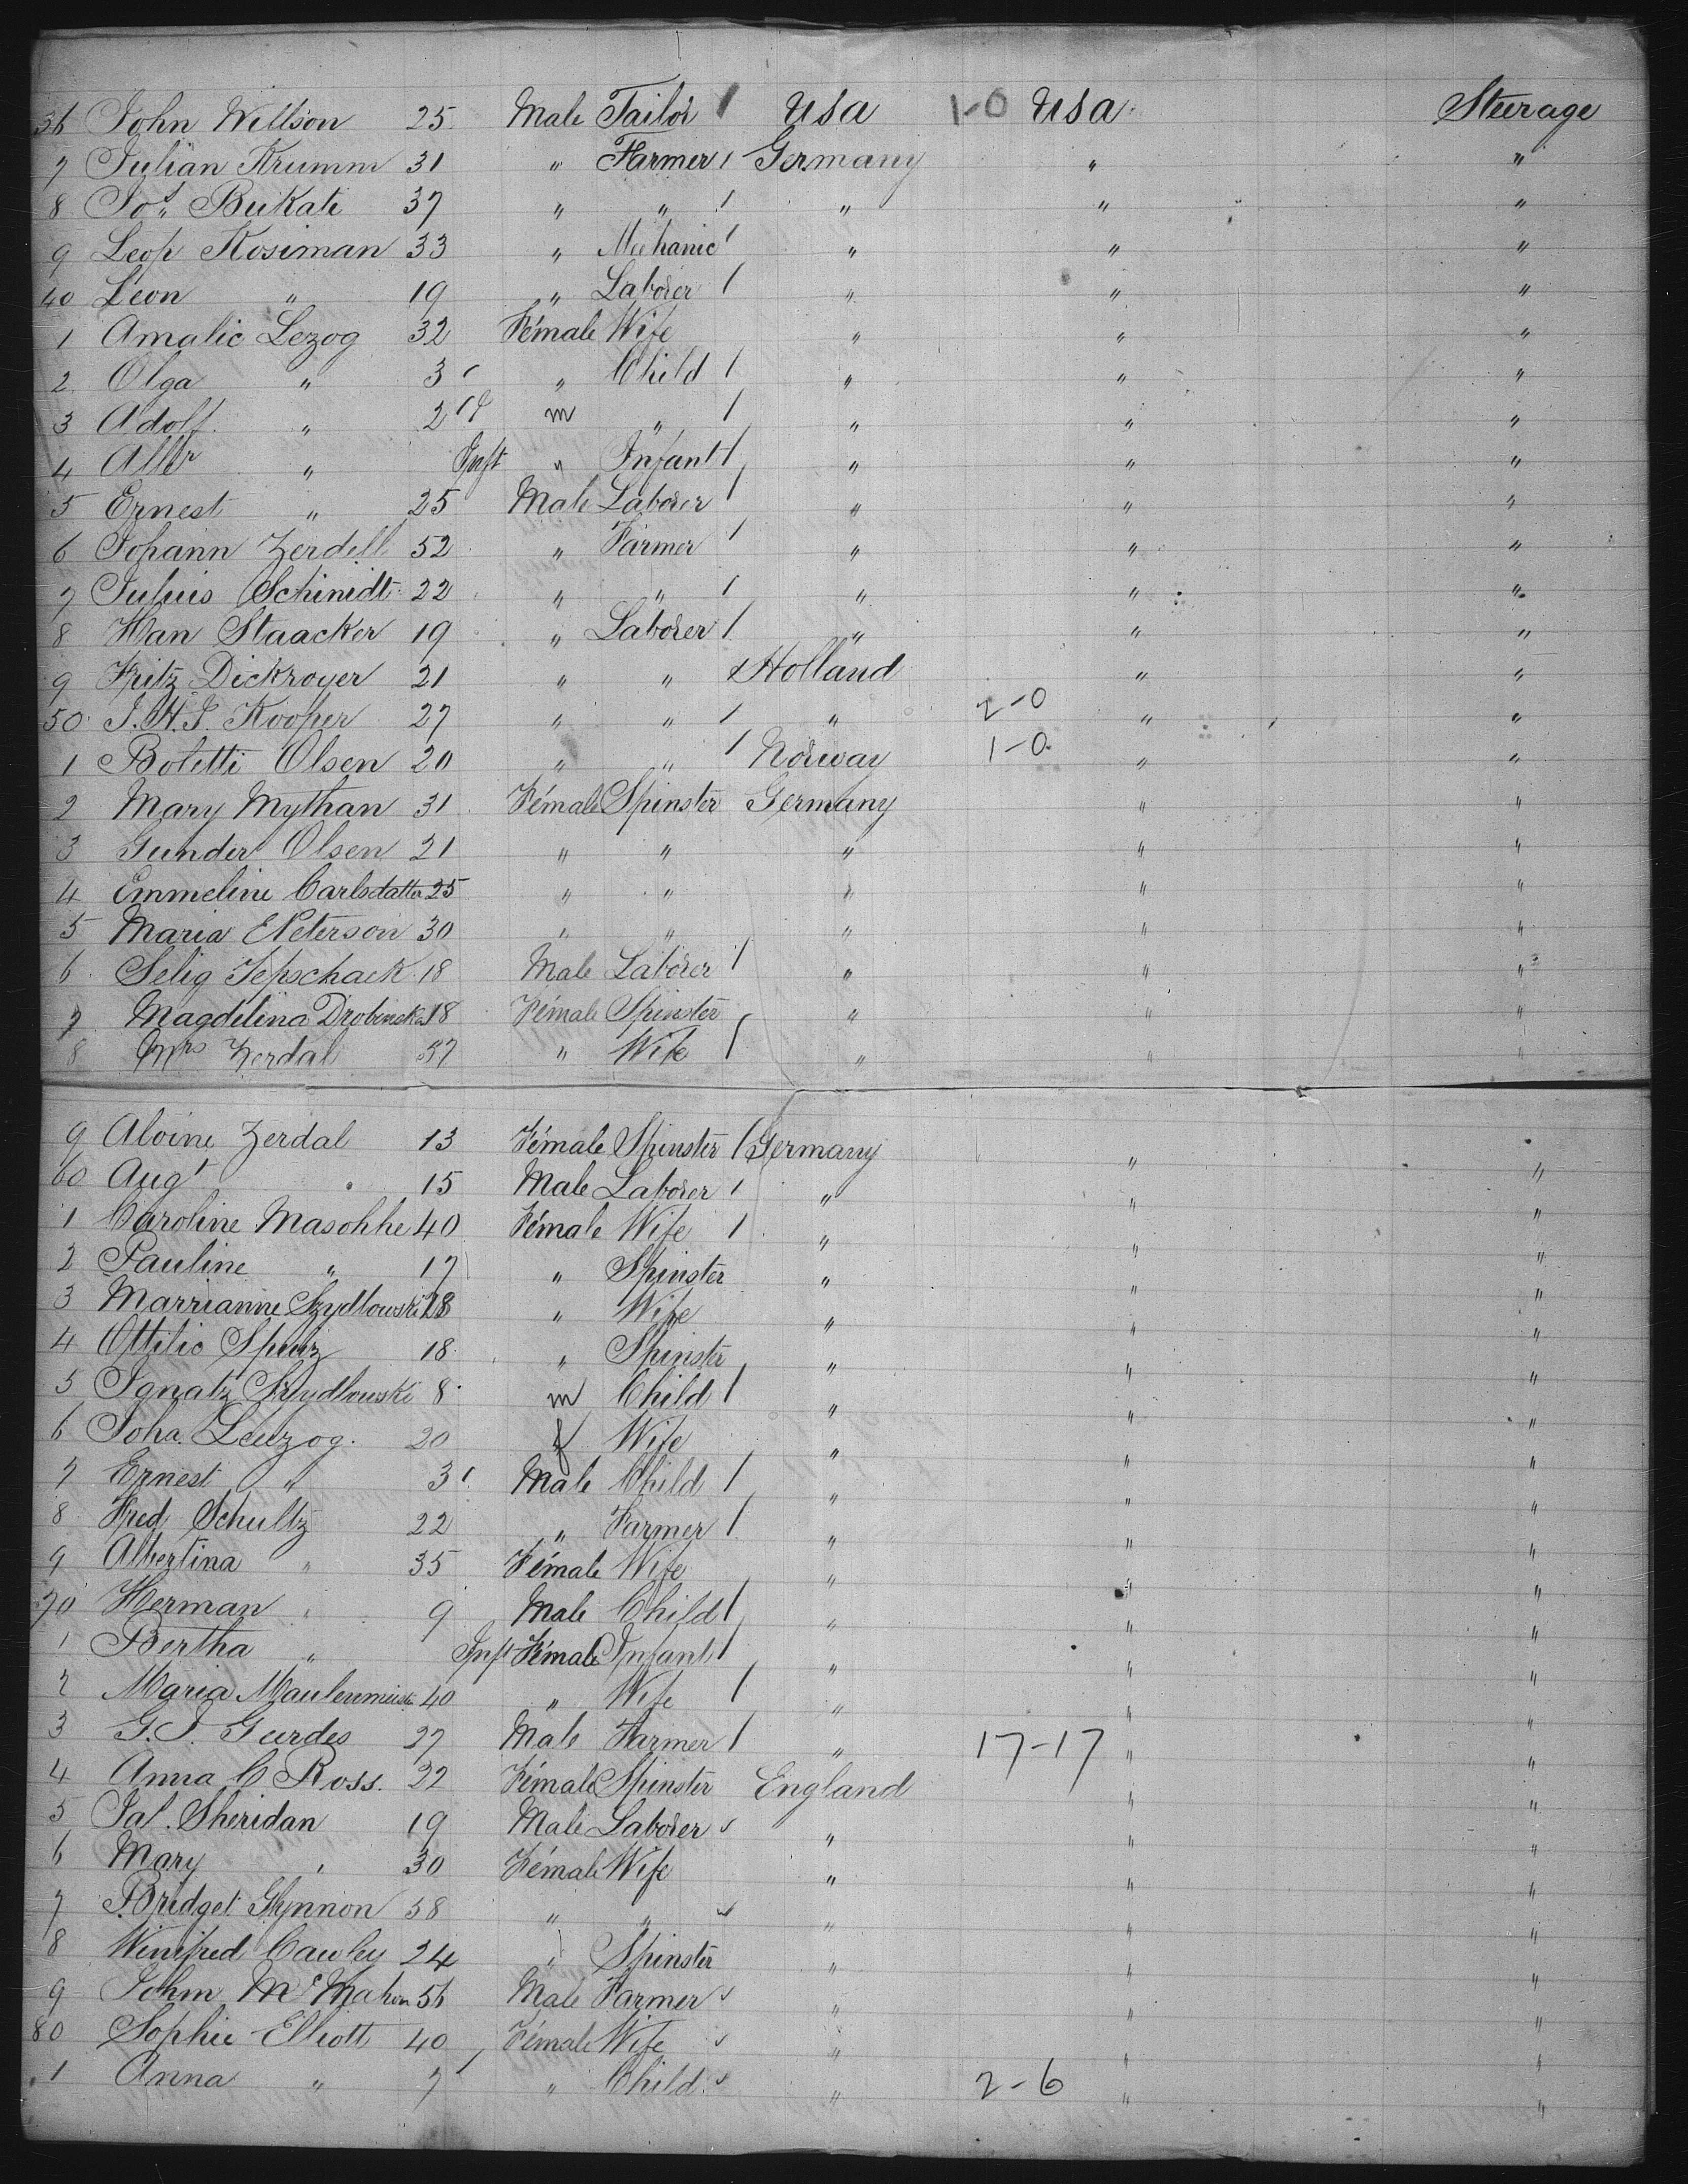 36 John Willson 25 Male Tailor / USA 1-0 USA Steerage
7 Julian Krumm 31 " Farmer / Germany " "
8 Jos. Bukati 37 " " / " " "
9 Leop Kosiman 33 " Mechanic / " " "
40 Leon " 19 " Laborer / " " "
1 Amalie Lezog 32 Female Wife " " "
2 Olga " 3 " Child / " " "
3 Adolf " 2 m " / " " "
4 " Inft " Infant / " " "
5 Ernest " 25 Male Laborer / " " "
6 Johann Zerdell 52 " Farmer / " " "
7 Julius Schmidt 22 " " / " " "
8 Han Staacker 19 " Laborer / " " "
9 Fritz Dickroyer 21 " " Holland " "
50 J.H.J. Kooper 27 " " / " 2-0 " "
1 Boletti Olsen 20 " " / Norway 1-0 " "
2 Mary Mythan 31 Female Spinster Germany " "
3 Gunder Olsen 21 " " " " "
4 Emmeline Carlsdatter 25 " " " " "
5 Maria E Peterson 30 " " " " "
6 Selig Jepschack 18 Male Laborer / " " "
7 Magdelina Drobinska 18 Female Spinster " " "
8 Mrs Zerdal 57 " Wife / " " "
9 Alvine Zerdal 13 Female Spinster / Germany " "
60 Augt " 15 Male Laborer / " " "
1 Caroline Masohhe 40 Female Wife / " " "
2 Pauline " 17 " Spinster " " "
3 Marrianne Szydlowski 28 " Wife " " "
4 Ottilie 18 " Spinster " " "
5 Ignatz Szydlowski 8 m Child / " " "
6 Joha. Leuzog. 20 f Wife " " "
7 Ernest " 3 Male Child / " " "
8 Fred Schultz 22 " Farmer / " " "
9 Albertina " 35 Female Wife " " "
70 Herman " 9 Male Child / " " "
1 Bertha " Inft Female Infant / " " "
2 Maria 40 " Wife / " " "
3 G.J. Gerdes 27 Male Farmer / " 17-17 " "
4 Anna C Ross. 22 Female Spinster England " "
5 Jas. Sheridan 19 Male Laborer " " "
6 Mary " 30 Female Wife " " "
7 Bridget Glynnon 58 " " " " "
8 Winifred Cawley 24 " Spinster " " "
9 John McMahon 56 Male Farmer " " "
80 Sophie Elliott 40 Female Wife " " "
1 Anna " 7 " Child " 2-6 " "